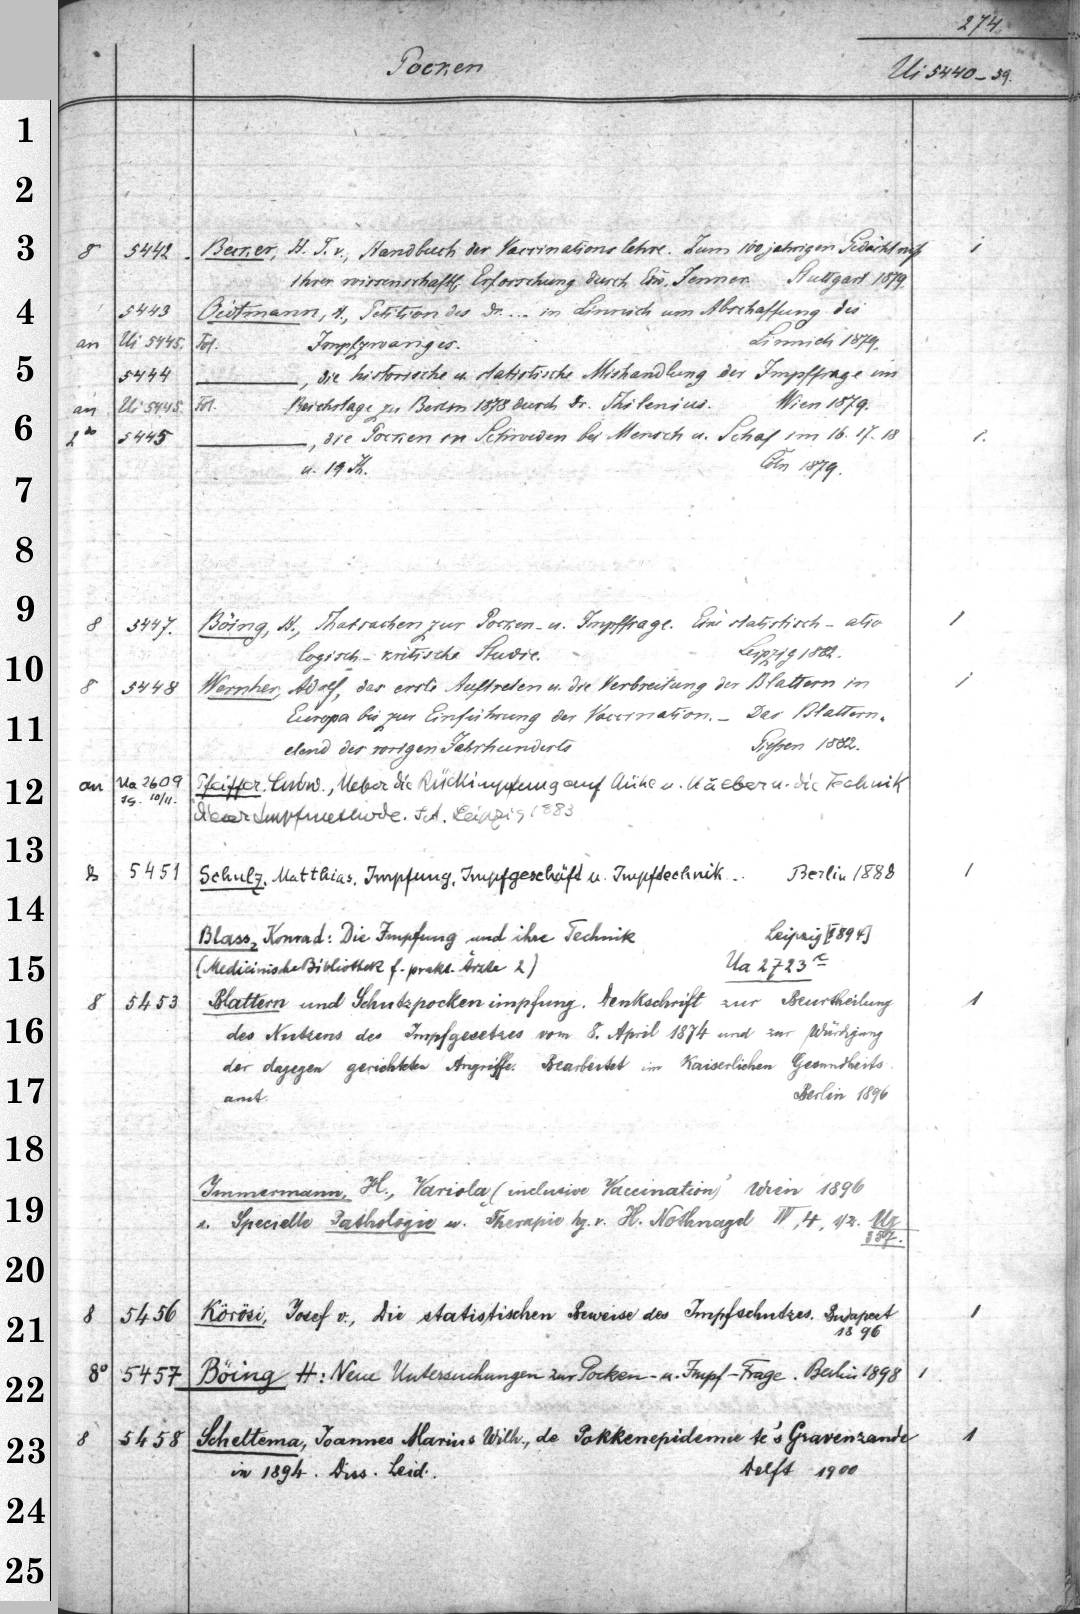 274.
Pocken
Ui 5440-59.
1
2
3
8 5442. Becker, H. T. v., Handbuch der Vaccinationslehre. Zum 100 jahrigen Gedächtniss i
ihrer wissenschaftl. Erforschung durch Ew. Jenner. Stuttgart 1879.
4
5443 Oidtmann, H., Petition des Dr. ... in Linnich um Abschaffung des
an Ui 5445. Fol. Impfzwanges. Linnich 1879.
5
5444 ———, die historische u. statistische Mishandlung der Impffrage im
an Ui 5445. Fol. Reichstage zu Berlin 1878 durch Dr. Thilenius. Wien 1879.
6
2° 5445 ———, die Pocken in Schweden bei Mensch u. Schaf im 16. 17. 18 i.
u. 19 Jh. Cöln 1879.
7
8
9
8 5447. Böing, H., Thatsachen zur Pocken- u. Impffrage. Eine statistisch- ätio 1
logisch- kritische Studie. Leipzig 1882.
10
8 5448 Wernher, Adolf, das erste Auftreten u. die Verbreitung der Blattern in i
Europa bis zur Einführung der Vaccination. - Das Blattern-
11
elend des vorigen Jahrhunderts Giessen 1882.
12
an Ua 2609 Pfeiffer, Ludw., Ueber die Rückimpfung auf Kühe u. Kälber u. die Technik
Jg. 10/11. dieser Impfmethode. Leipzig 1883
13
8 5451 Schulz, Matthias, Impfung, Impfgeschäft u. Impftechnik.. Berlin 1888 1
14
Blass, Konrad: Die Impfung und ihre Technik Leipzig [1894]
15
(Medicinische Bibliothek f. prakt. Ärzte 2) Ua 2723
8 5453 Blattern und Schutzpockenimpfung. Denkschrift zur Beurtheilung 1
16
des Nutzens des Impfgesetzes vom 8. April 1874 und zur Würdigung
der dagegen gerichteten Angriffe. Bearbeitet im Kaiserlichen Gesundheits
17
amt. Berlin 1896
18
Immermann, H., Variola (inclusive Vaccination) Wien 1896
19
s. Specielle Pathologie u. Therapie hg. v. H. Nothnagel IV, 4, 1/2. Uz
357.
20
21
8 5456 Körösi, Josef v., Die statistischen Beweise des Impfschutzes. Budapest 1
1896
22
8° 5457 Böing H: Neue Untersuchungen zur Pocken- u. Impf-Frage. Berlin 1898 1
23
8 5458 Scheltema, Joannes Marius Wilh., de Pokkenepidemie te 's Gravenzande 1
in 1894. Diss. Leid. Delft 1900
24
25